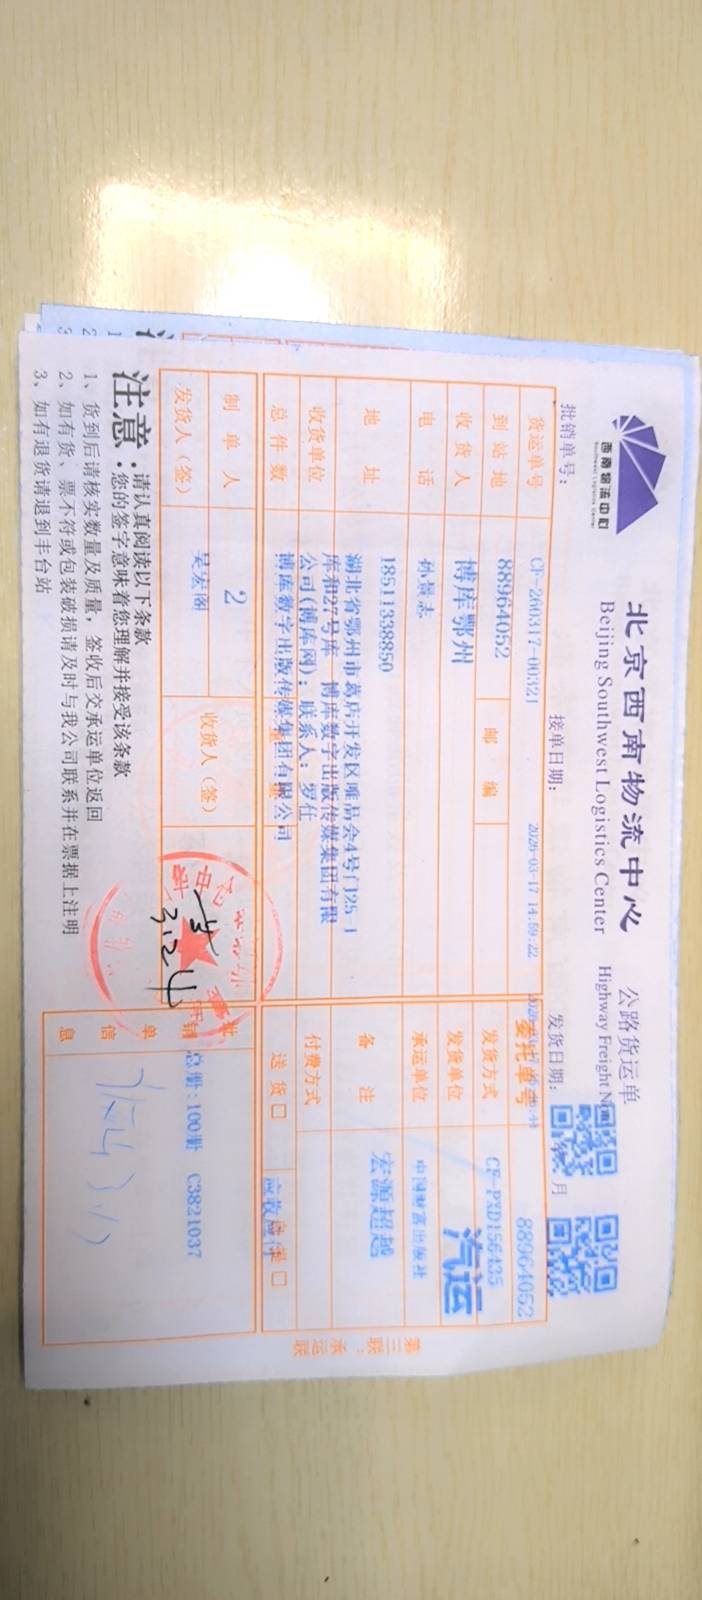 西南物流中心
Southwest Logistics Center
北京西南物流中心
公路货运单
Beijing Southwest Logistics Center
Highway Freight
批销单号：
接单日期：
2026-03-17 14:59:22
发货日期：
月
货运单号
CF-260317-00321
委托单号
88964052
到站地
88964052
邮编
发货方式
CF-PXD156435
收货人
博库鄂州
发货单位
汽运
电话
孙景志
承运单位
中国财富出版社
地址
18511338850
湖北省鄂州市葛店开发区唯品会4号门25-1
库和27号库 博库数字出版传媒集团有限
公司(博库网)；联系人：罗仕
备注
宏源超越
收货单位
博库数字出版传媒集团有限公司
付费方式
总件数
2
送货□
制单人
吴宏阁
收货人（签）
发货人（签）
批销单信息
总册：100册 C3821037
3.24
注意：
请认真阅读以下条款
您的签字意味着您理解并接受该条款
1、货到后请核实数量及质量，签收后交承运单位返回
2、如有货、票不符或包装破损请及时与我公司联系并在票据上注明
3、如有退货请退到丰台站
第三联：承运联